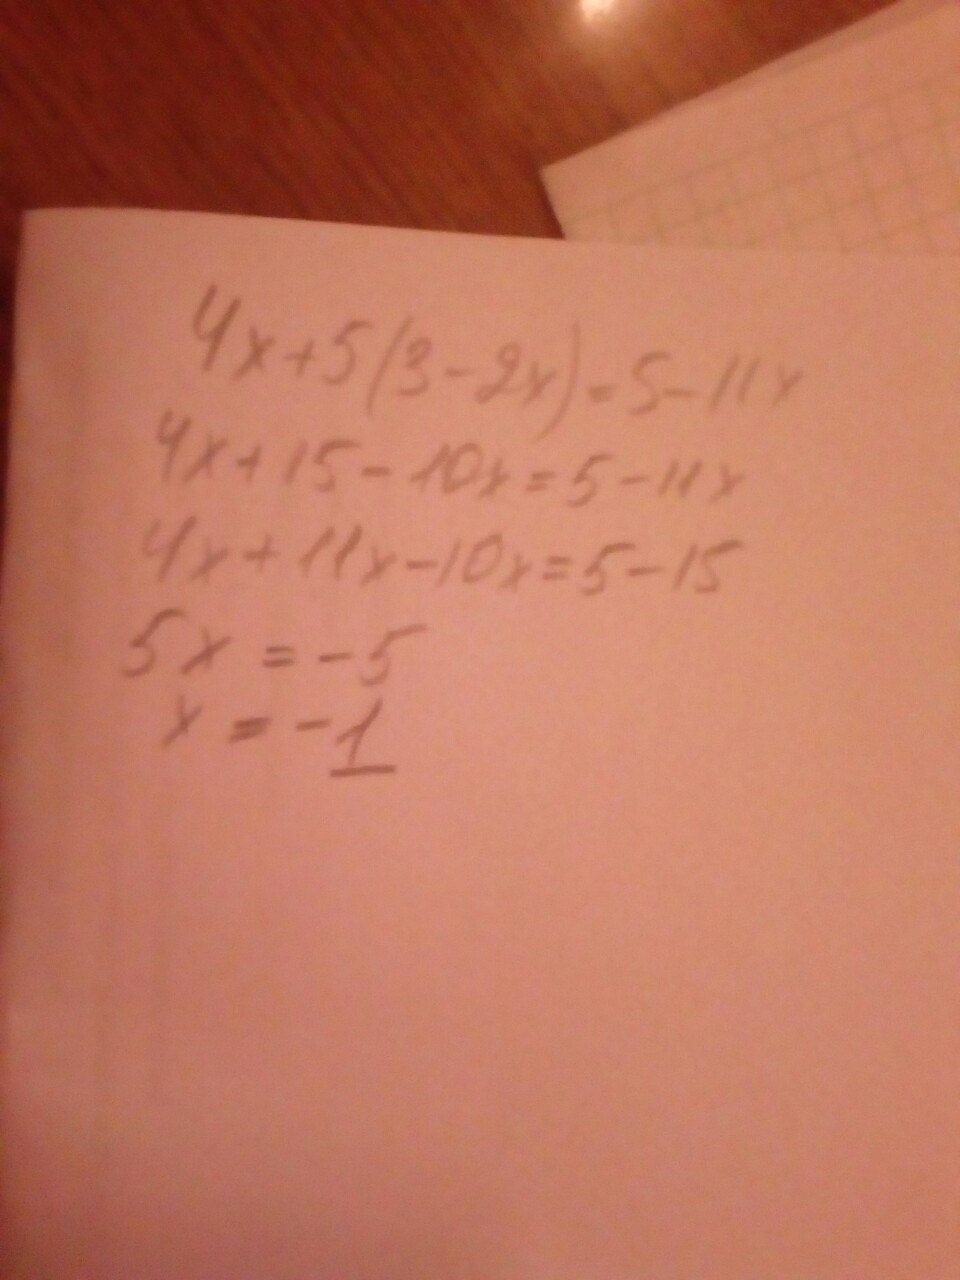 4x+5(3-2x)=5-11x
4x+15-10x=5-11x
4x+11x-10x=5-15
5x=-5
x=-1